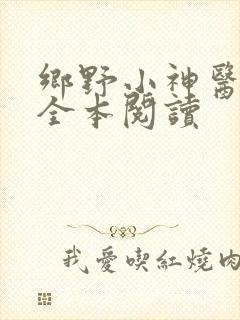 鄉野小神醫
全本閱讀
我愛喫紅燒肉